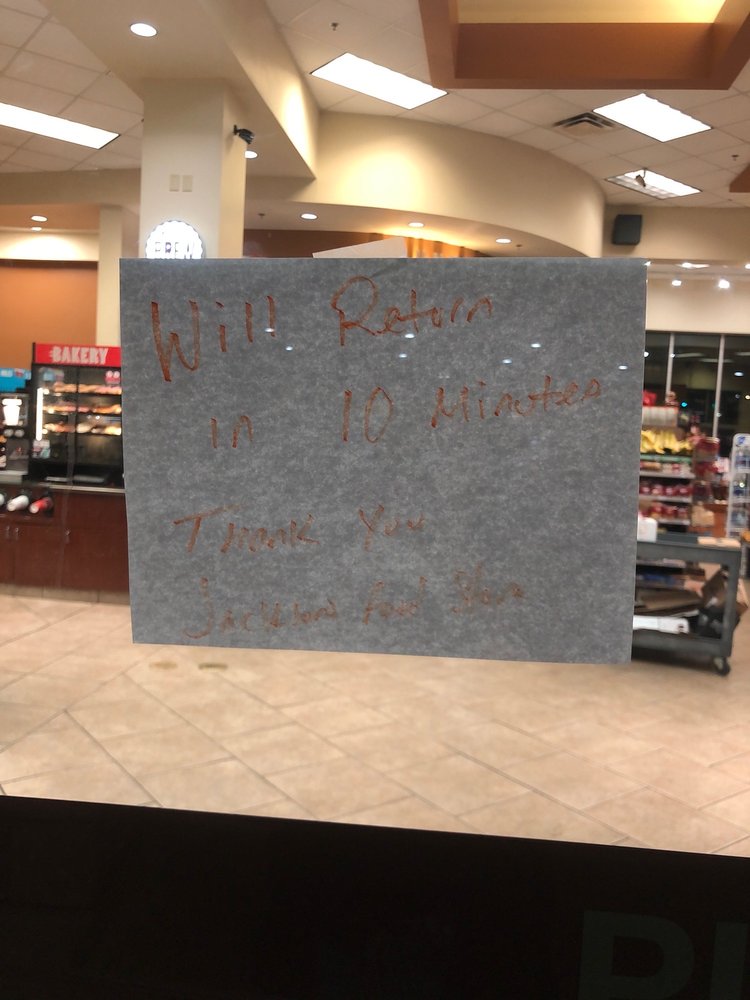 BREW
BAKERY
Will Return
in 10 Minutes
Thank You
Jacksons food Store